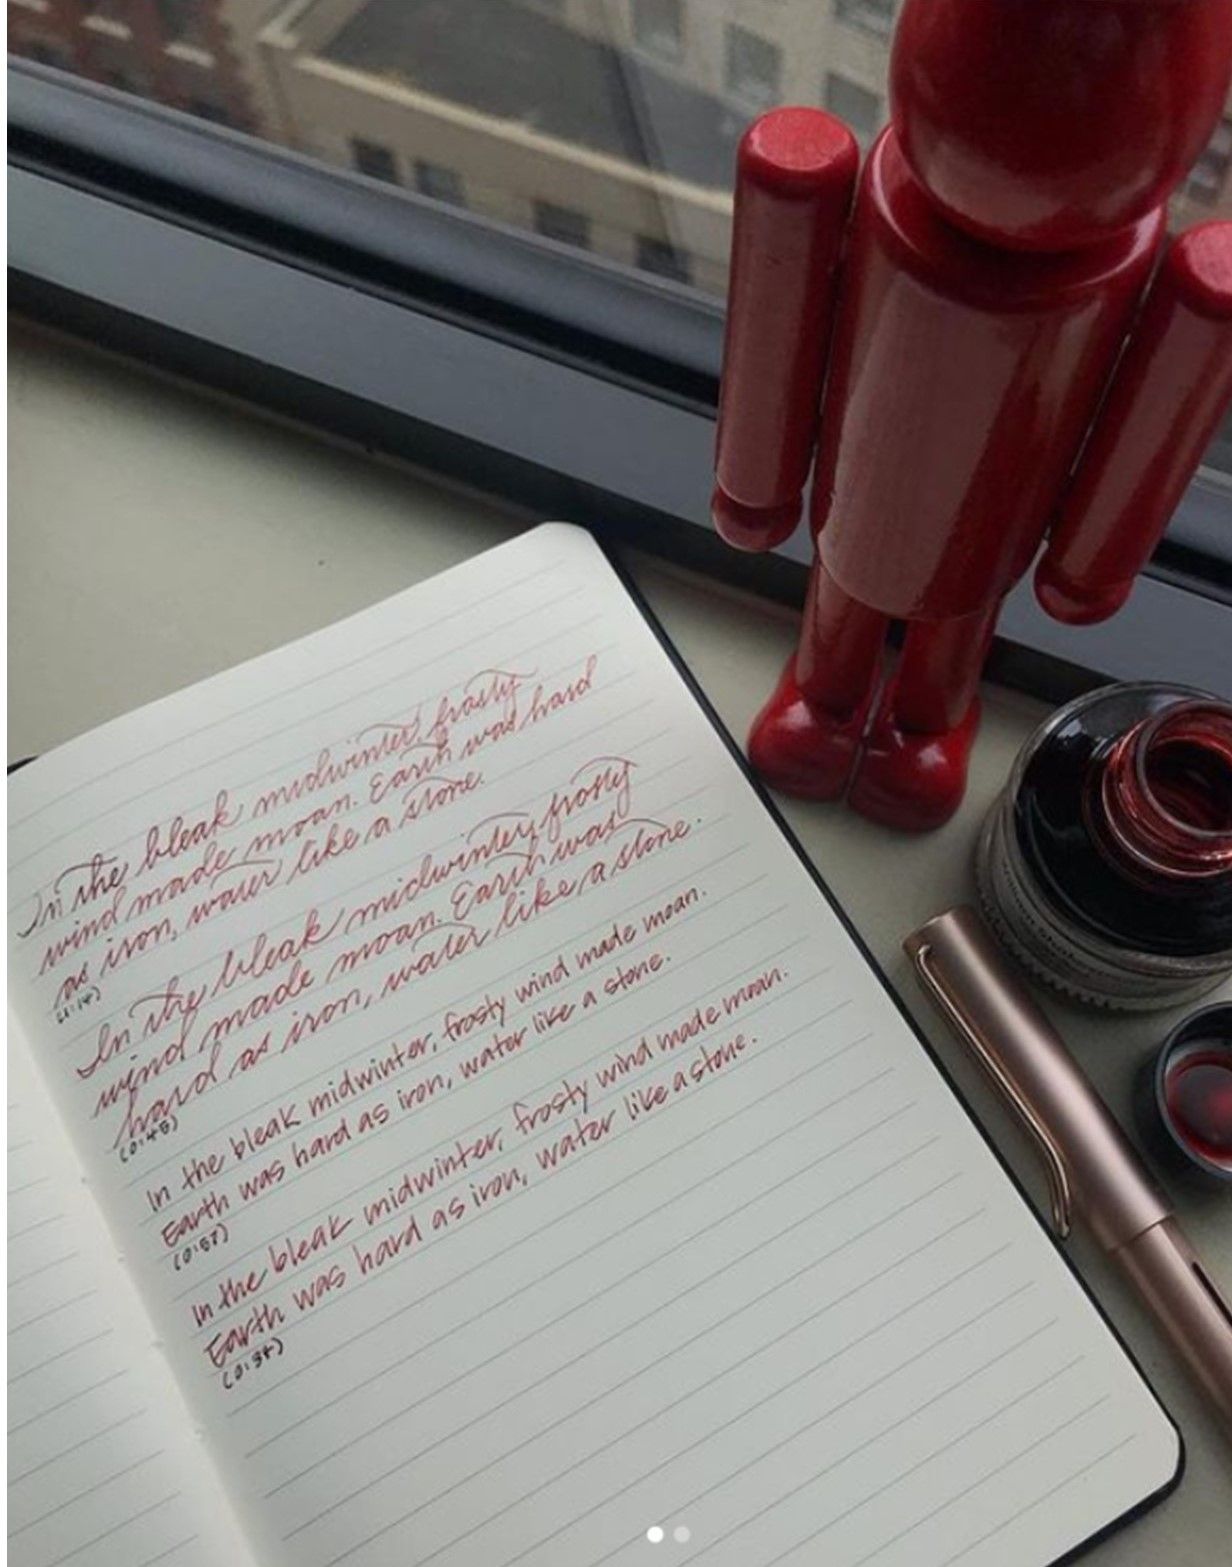 In the bleak midwinter, frosty
wind made moan. Earth was hard
as iron, water like a stone.
(1:14)
In the bleak midwinter, frosty
wind made moan. Earth was
hard as iron, water like a stone.
(0:48)
In the bleak midwinter, frosty wind made moan.
Earth was hard as iron, water like a stone.
(0:57)
In the bleak midwinter, frosty wind made moan.
Earth was hard as iron, water like a stone.
(0:34)